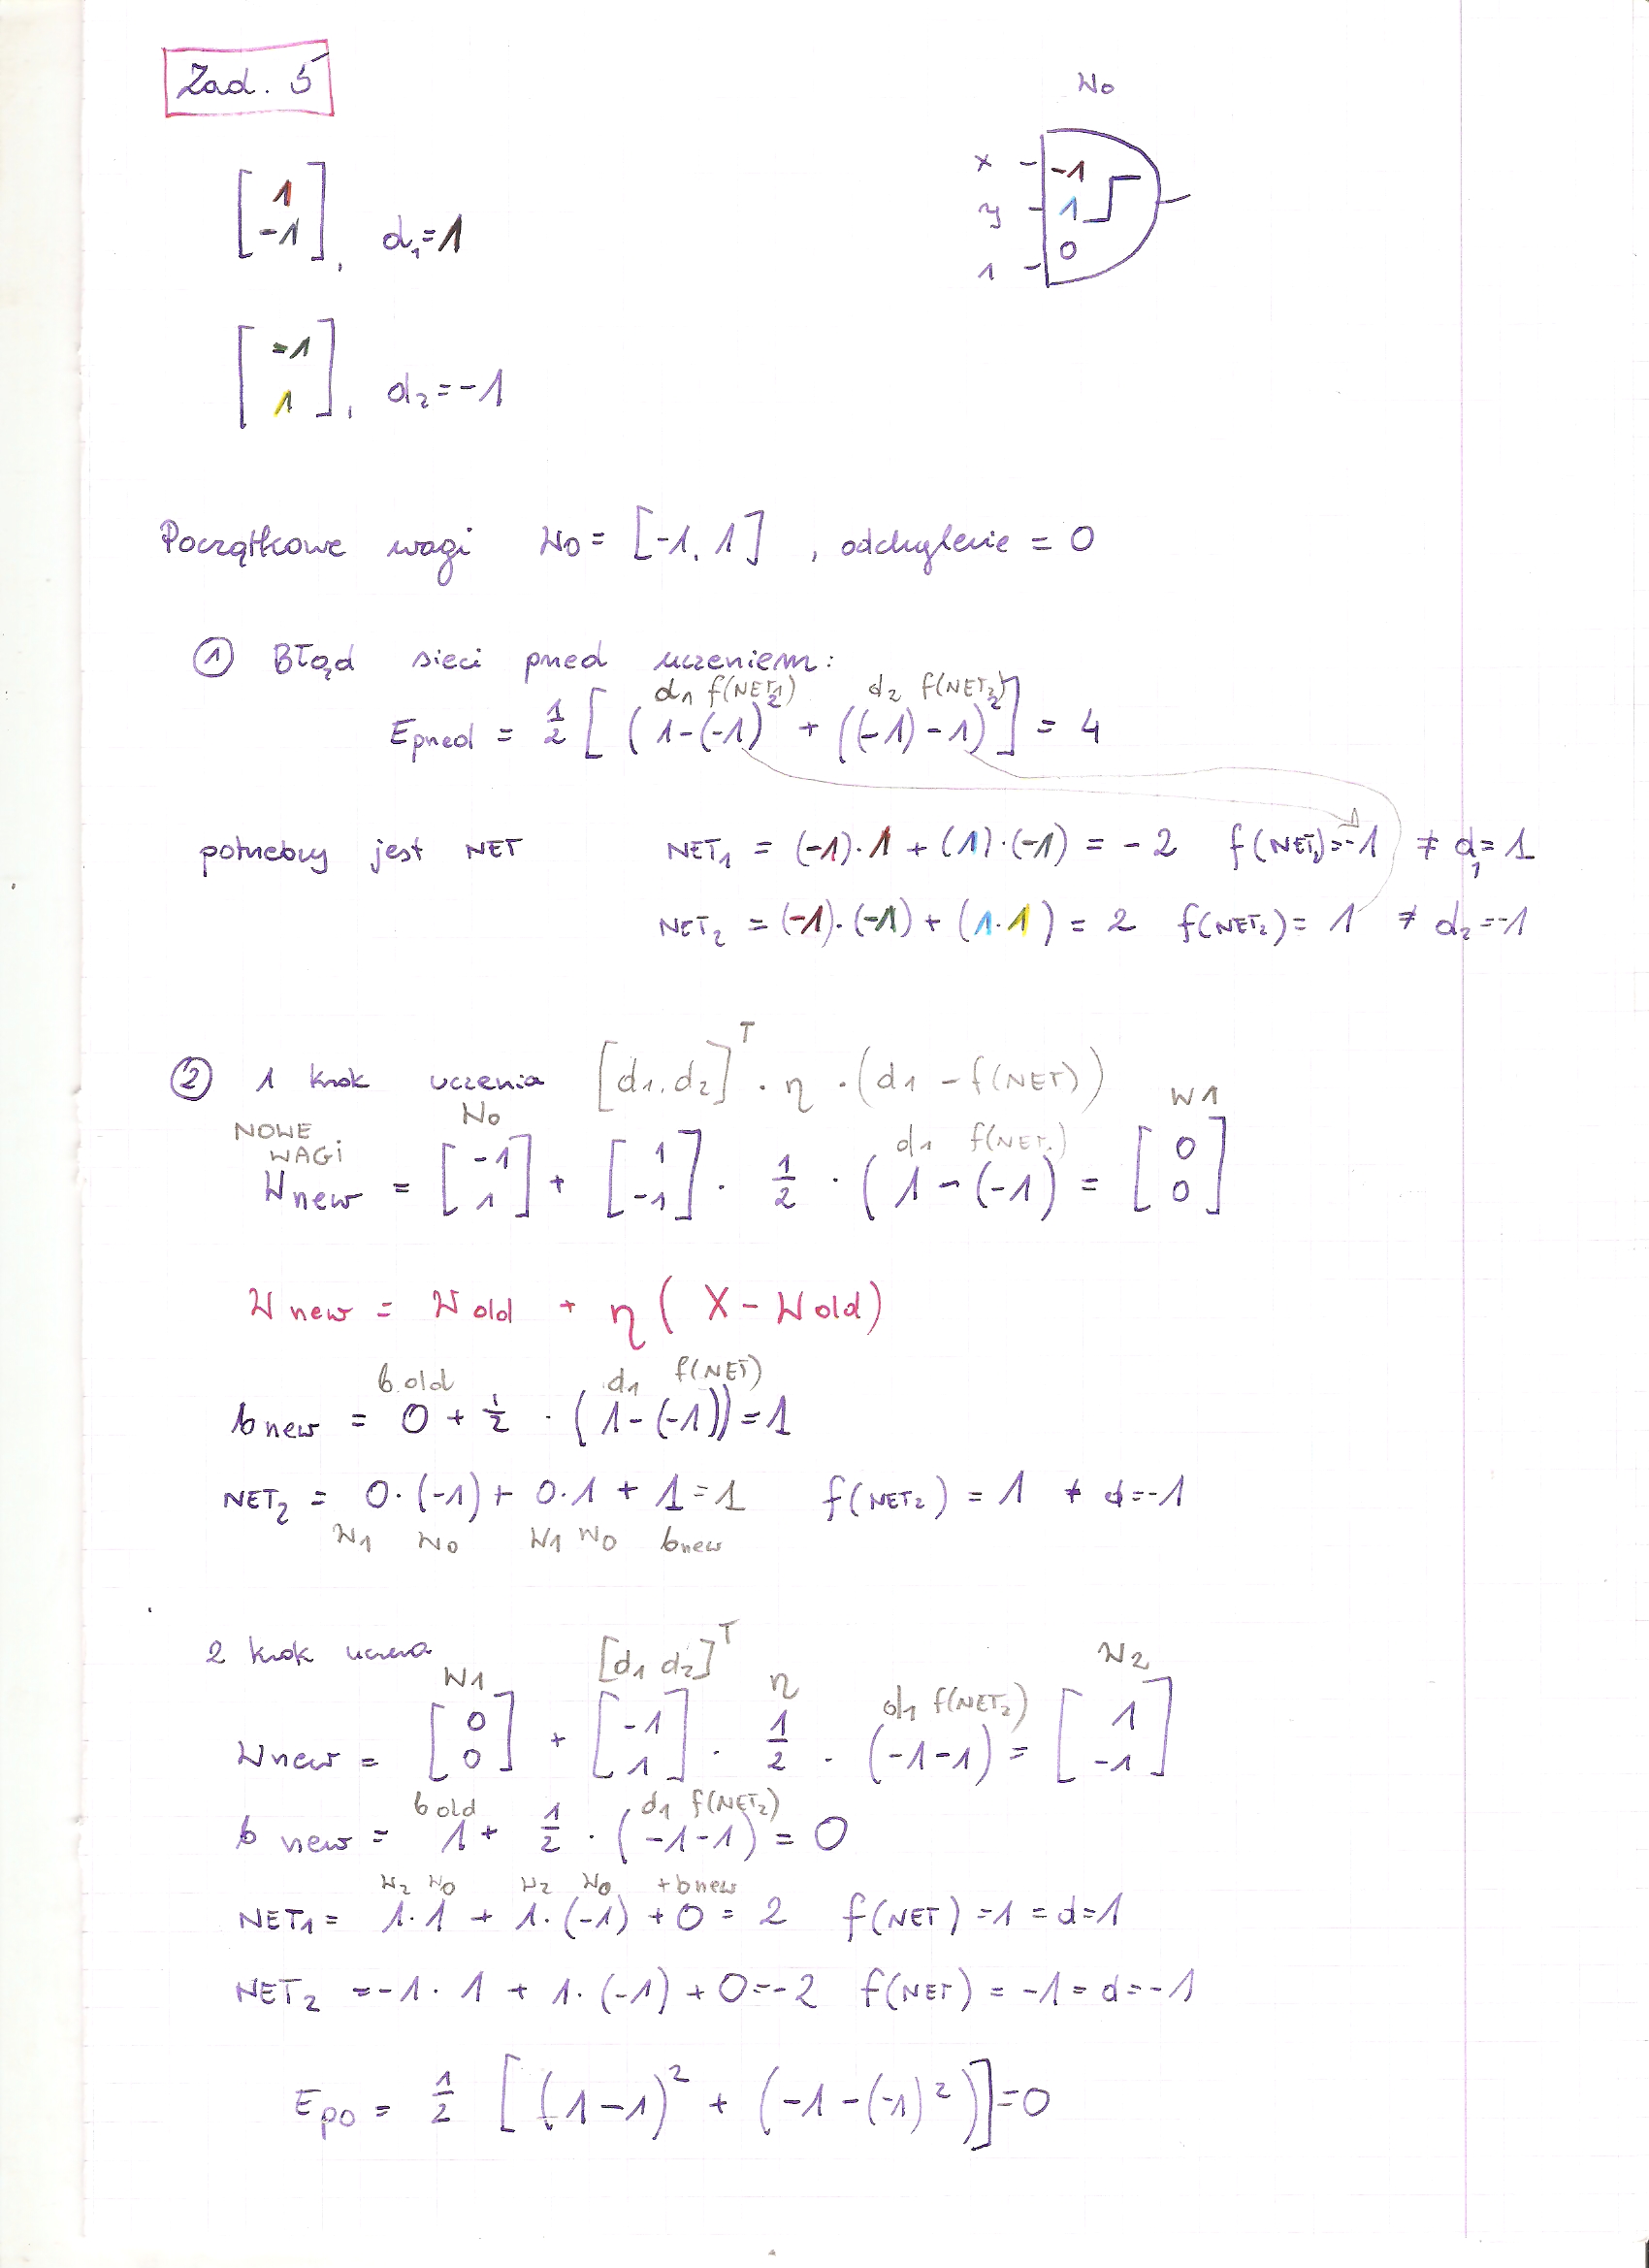 Zad. 5
W0
[1 -1], d1=1
x -1
y 1
1 0
[-1 1], d2=-1
Początkowe wagi W0 = [-1, 1], odchylenie = 0
① Błąd sieci przed uczeniem:
d1 f(NET1) d2 f(NET2)
Eprzed = 1/2 [(1-(-1)²) + ((-1)-1)²] = 4
potrzebny jest NET NET1 = (-1)·1 + (1)·(-1) = -2 f(NET1)=-1 ≠ d1=1
NET2 = (-1)·(-1) + (1·1) = 2 f(NET2)= 1 ≠ d2=-1
② 1 krok uczenia [d1, d2]^T · η · (d1 - f(NET))
NOWE WAGI W0 d1 f(NET1) W1
Wnew = [-1 1] + [1 -1] · 1/2 · (1-(-1)) = [0 0]
Wnew = Wold + η (X - Wold)
b old d1 f(NET)
bnew = 0 + 1/2 · (1-(-1)) = 1
NET2 = 0·(-1) + 0·1 + 1 = 1 f(NET2) = 1 ≠ d=-1
W1 W0 W1 W0 bnew
2 krok uczenia [d1 d2]^T
W1 η d1 f(NET2) W2
Wnew = [0 0] + [-1 1] · 1/2 · (-1-1) = [1 -1]
b old d1 f(NET2)
b new = 1 + 1/2 · (-1-1) = 0
W2 W0 W2 W0 +bnew
NET1 = 1·1 + 1·(-1) + 0 = 2 f(NET) = 1 = d=1
NET2 = -1·1 + 1·(-1) + 0 = -2 f(NET) = -1 = d=-1
Epo = 1/2 [(1-1)² + (-1-(-1)²)] = 0